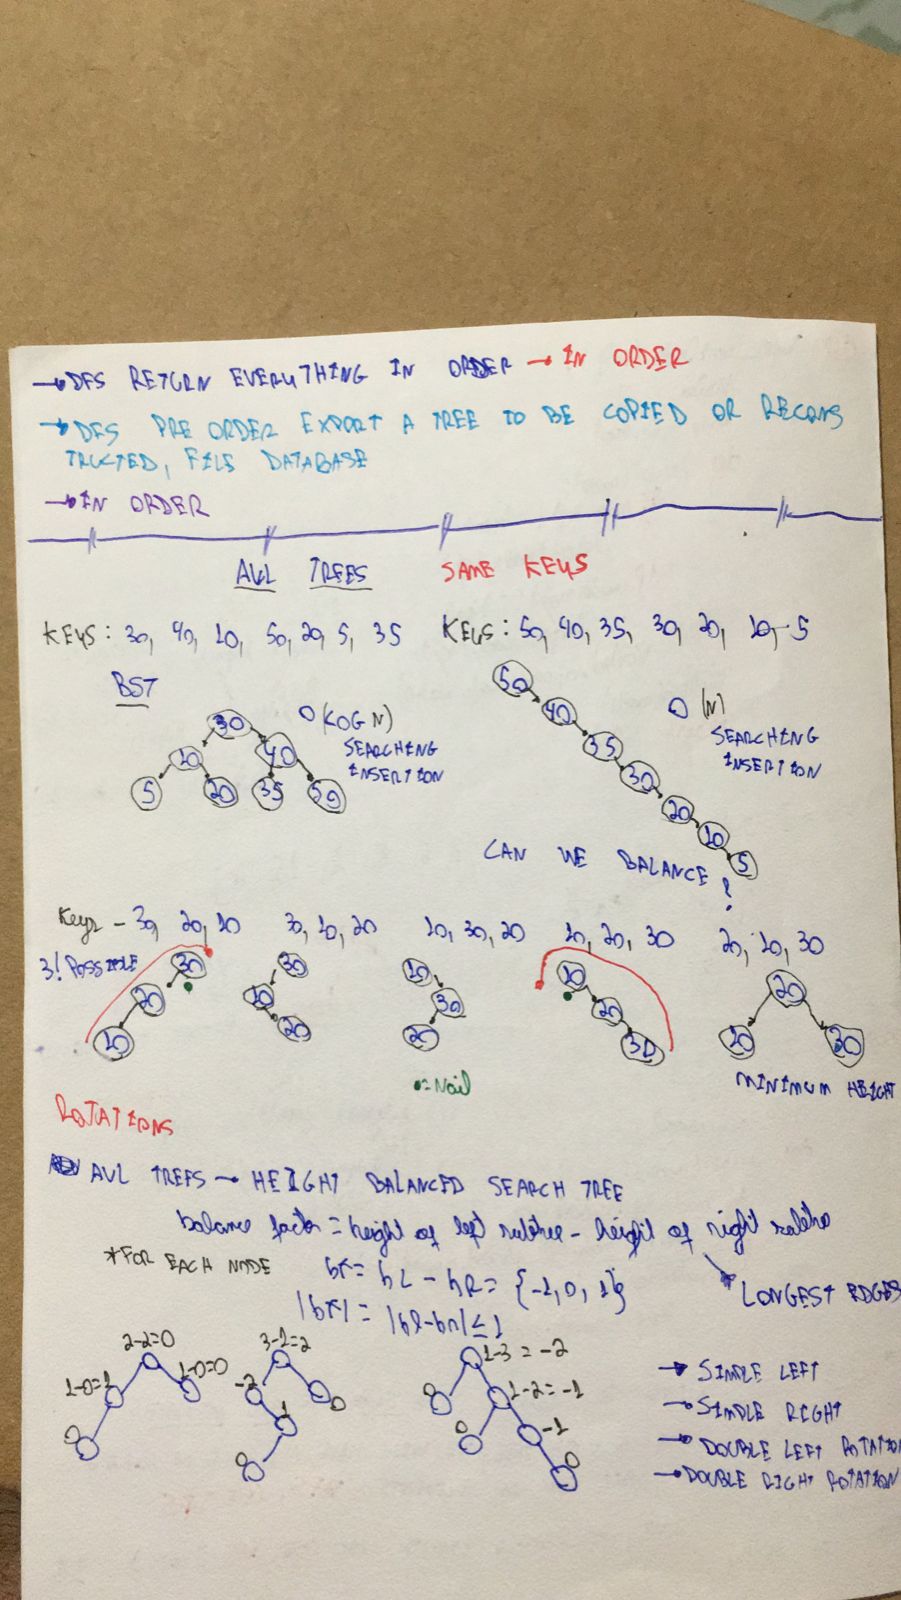 → DFS RETURN EVERYTHING IN ORDER → IN ORDER
→ DFS PRE ORDER EXPORT A TREE TO BE COPIED OR RECONS
TRUCTED, FILE DATABASE
→ IN ORDER
AVL TREES SAME KEYS
KEYS: 30, 40, 10, 50, 20, 5, 35 KEYS: 50, 40, 35, 30, 20, 10, 5
BST
30 10 40 5 20 35 50
O(LOG N)
SEARCHING
INSERTION
50 40 35 30 20 10 5
O(N)
SEARCHING
INSERTION
CAN WE BALANCE?
Keys - 30, 20, 10 30, 10, 20 10, 30, 20 10, 20, 30 20, 10, 30
3! POSSIBLE
30 20 10
30 10 20
10 30 20
10 20 30
20 10 30
• = Nail
MINIMUM HEIGHT
ROTATIONS
AVL TREES → HEIGHT BALANCED SEARCH TREE
balance factor = height of left subtree - height of right subtree
*FOR EACH NODE
bf = hL - hR = {-1, 0, 1}
LONGEST EDGES
|bf| = |hl-hr| ≤ 1
2-2=0 1-0=1 1-0=0 0
3-1=2 -2 0 1 0
1-3=-2 0 1-2=-1 0 -1 0
→ SIMPLE LEFT
→ SIMPLE RIGHT
→ DOUBLE LEFT ROTATION
→ DOUBLE RIGHT ROTATION